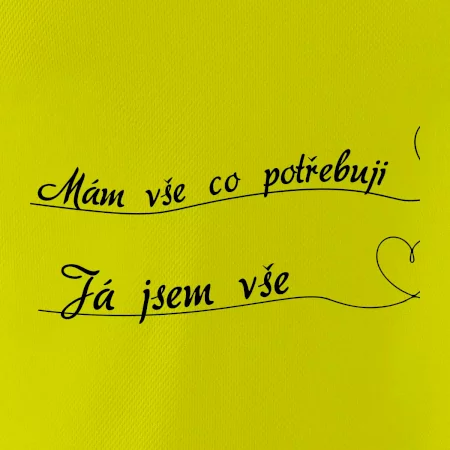 Mám vše co potřebuji
Já jsem vše